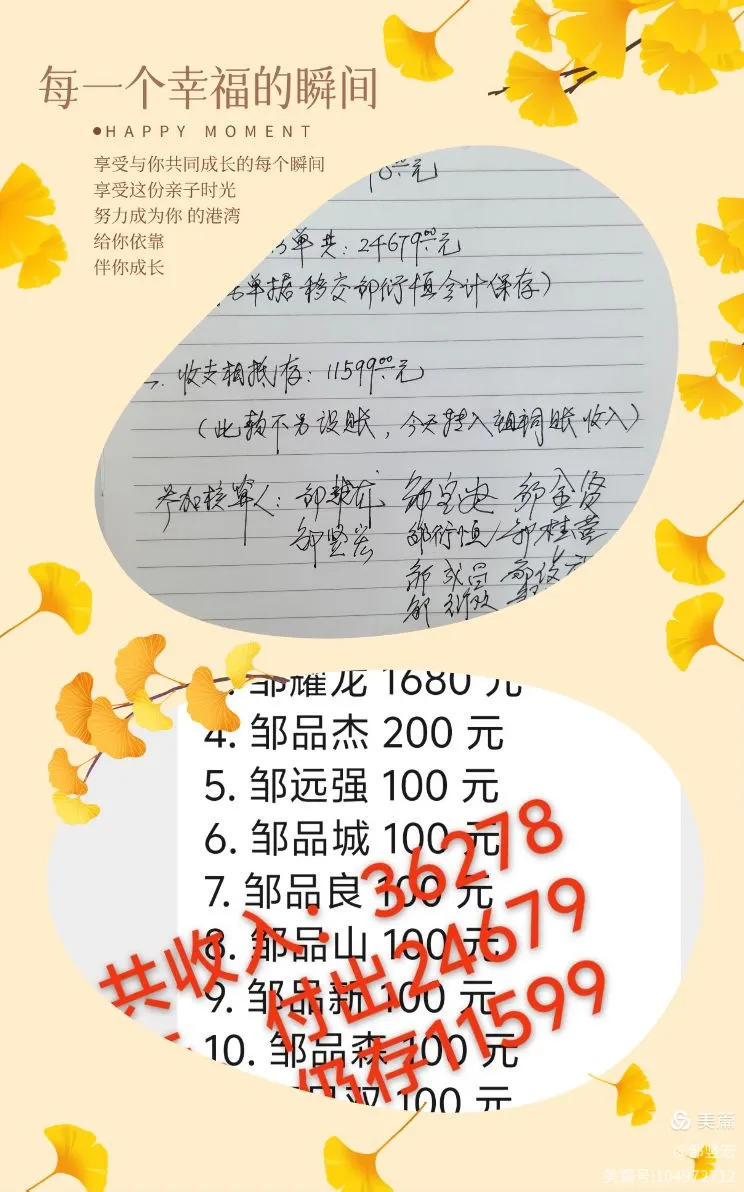 每一个幸福的瞬间
●HAPPY MOMENT
享受与你共同成长的每个瞬间
享受这份亲子时光
努力成为你 的港湾
给你依靠
伴你成长
元
单共：24679.00元
单据移交邹衍恒会计保存）
收支相抵存：11599.00元
（此款不另设账，今天转入祖祠账收入）
参加核算人：
邹坚宏 邹衍恒 邹桂营
邹耀龙 1680 元
4. 邹品杰 200 元
5. 邹远强 100 元
6. 邹品城 100 元
7. 邹品良 100 元
8. 邹品山 100 元
9. 邹品新 100 元
10. 邹品森 100 元
100 元
共收入：36278
付出24679
仍存11599
美篇
@邹坚宏
美篇号:104972712